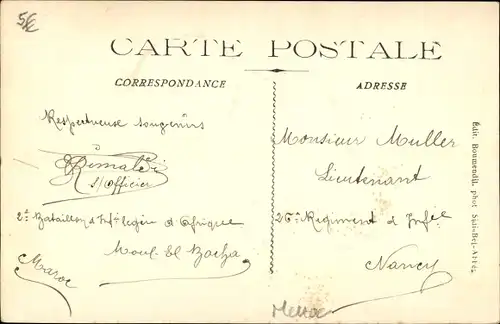 5€
CARTE POSTALE
CORRESPONDANCE
Respectueuse sougenirs
S/Officier
2e Bataillon d Infie legère d Afrique
Moul El Bacha
Maroc
ADRESSE
Monsieur Muller
Lieutenant
26e Regiment d Infie
Nancy
Édit. Boumendil, phot. Sidi-Bel-Abbès.